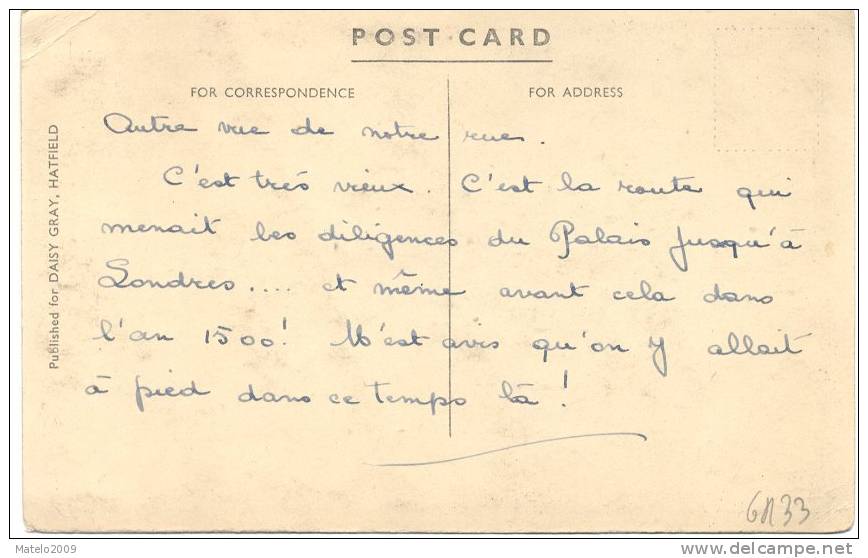 POST CARD
FOR CORRESPONDENCE
FOR ADDRESS
Published for DAISY GRAY, HATFIELD
Autre vue de notre rue.
C'est très vieux. C'est la route qui
menait les diligences du Palais jusqu'à
Londres.... et même avant cela dans
l'an 1500! M'est avis qu'on y allait
à pied dans ce temps là!
Matelo2009
www.delcampe.net